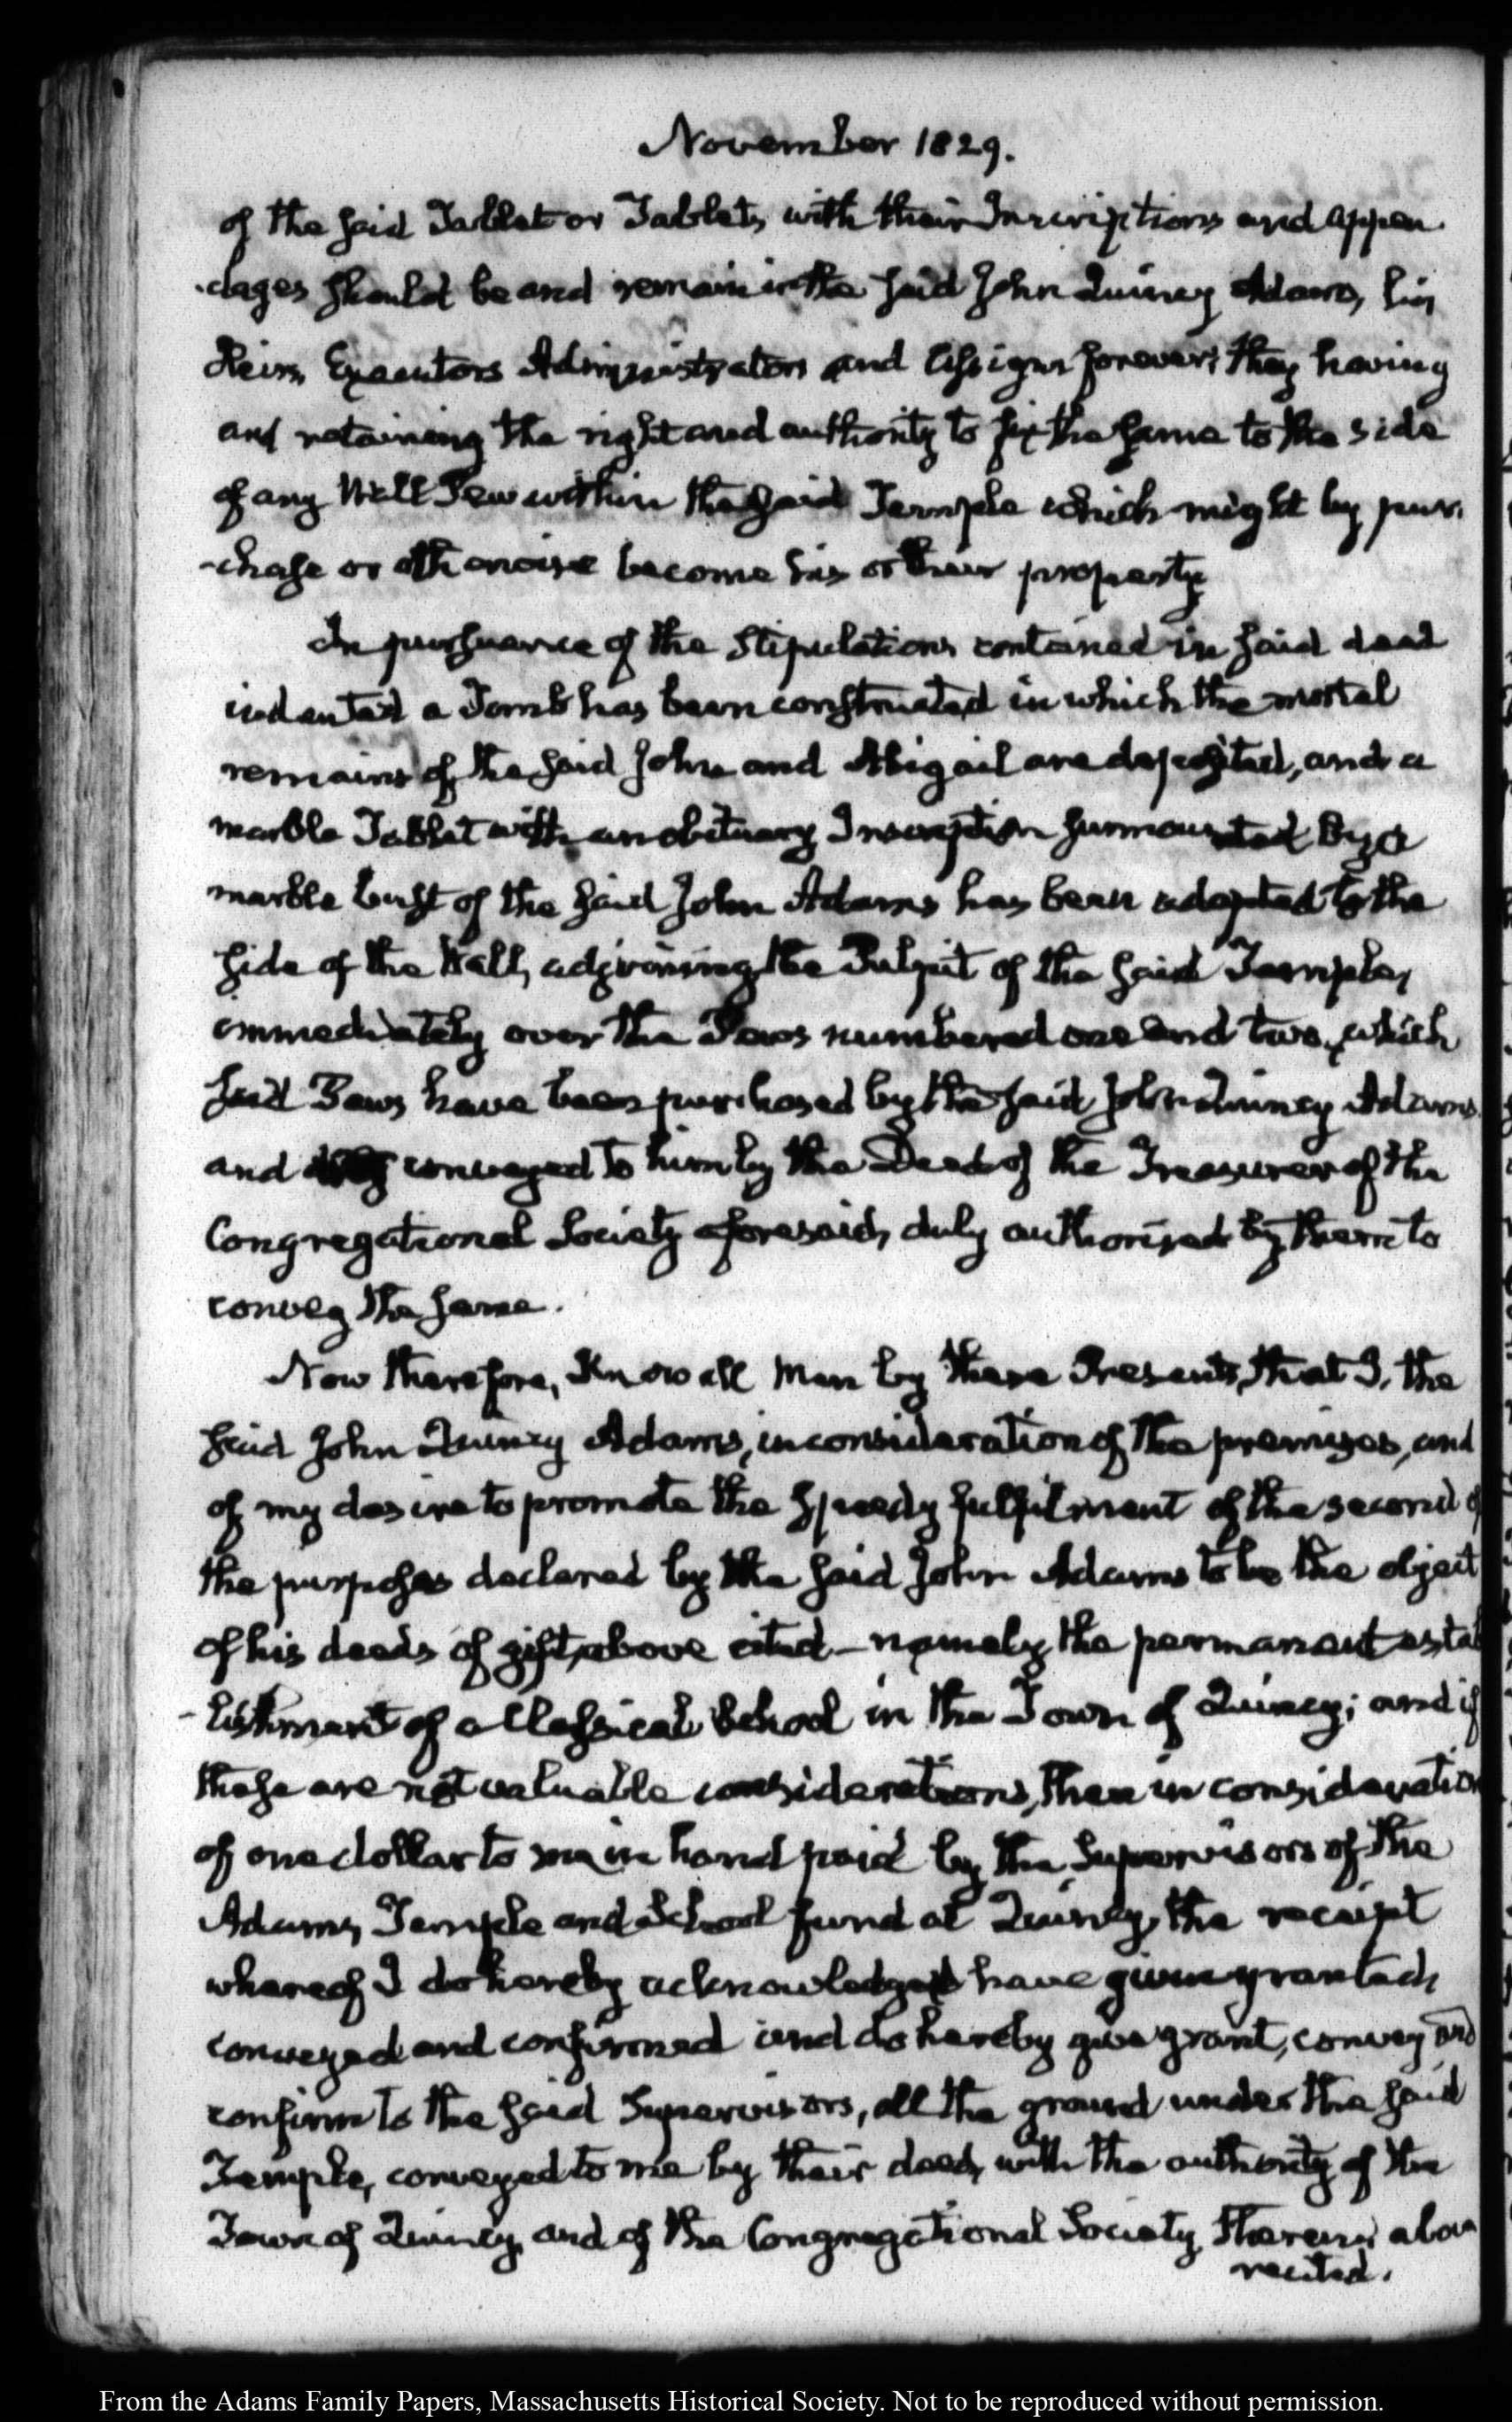 November 1829.
of the said Tablet or Tablets, with their Inscriptions and appen
-dages should be and remain in the said John Quincy Adams, his
Heirs, Executors Administrators and Assigns forever; they having
and retaining the right and authority to fix the same to the side
of any Wall Pew within the said Temple which might by pur
-chase or otherwise become his or their property.
In pursuance of the Stipulations contained in said deed
indented a Tomb has been constructed in which the mortal
remains of the said John and Abigail are deposited, and a
marble Tablet with an obituary Inscription surmounted By a
marble bust of the said John Adams has been adapted to the
side of the Wall, adjoining the Pulpit of the said Temple,
immediately over the Pews numbered one and two, which
said Pews have been purchased by the said John Quincy Adams
and conveyed to him by the Deed of the Treasurer of the
Congregational Society aforesaid, duly authorized by them to
convey the same.
Now therefore, Know all Men by these Presents, that I, the
said John Quincy Adams, in consideration of the premises, and
of my desire to promote the speedy fulfilment of the second of
the purposes declared by the said John Adams to be the object
of his deeds of gift, above cited – namely the permanent estab
-lishment of a Classical School in the Town of Quincy; and if
these are not valuable considerations, then in consideration
of one dollar to me in hand paid by the Supervisors of the
Adams Temple and School fund at Quincy, the receipt
whereof I do hereby acknowledge have given granted,
conveyed and confirmed and do hereby give grant, convey and
confirm to the said Supervisors, all the ground under the said
Temple, conveyed to me by their deed, with the authority of the
Town of Quincy, and of the Congregational Society therein above
recited.
From the Adams Family Papers, Massachusetts Historical Society. Not to be reproduced without permission.